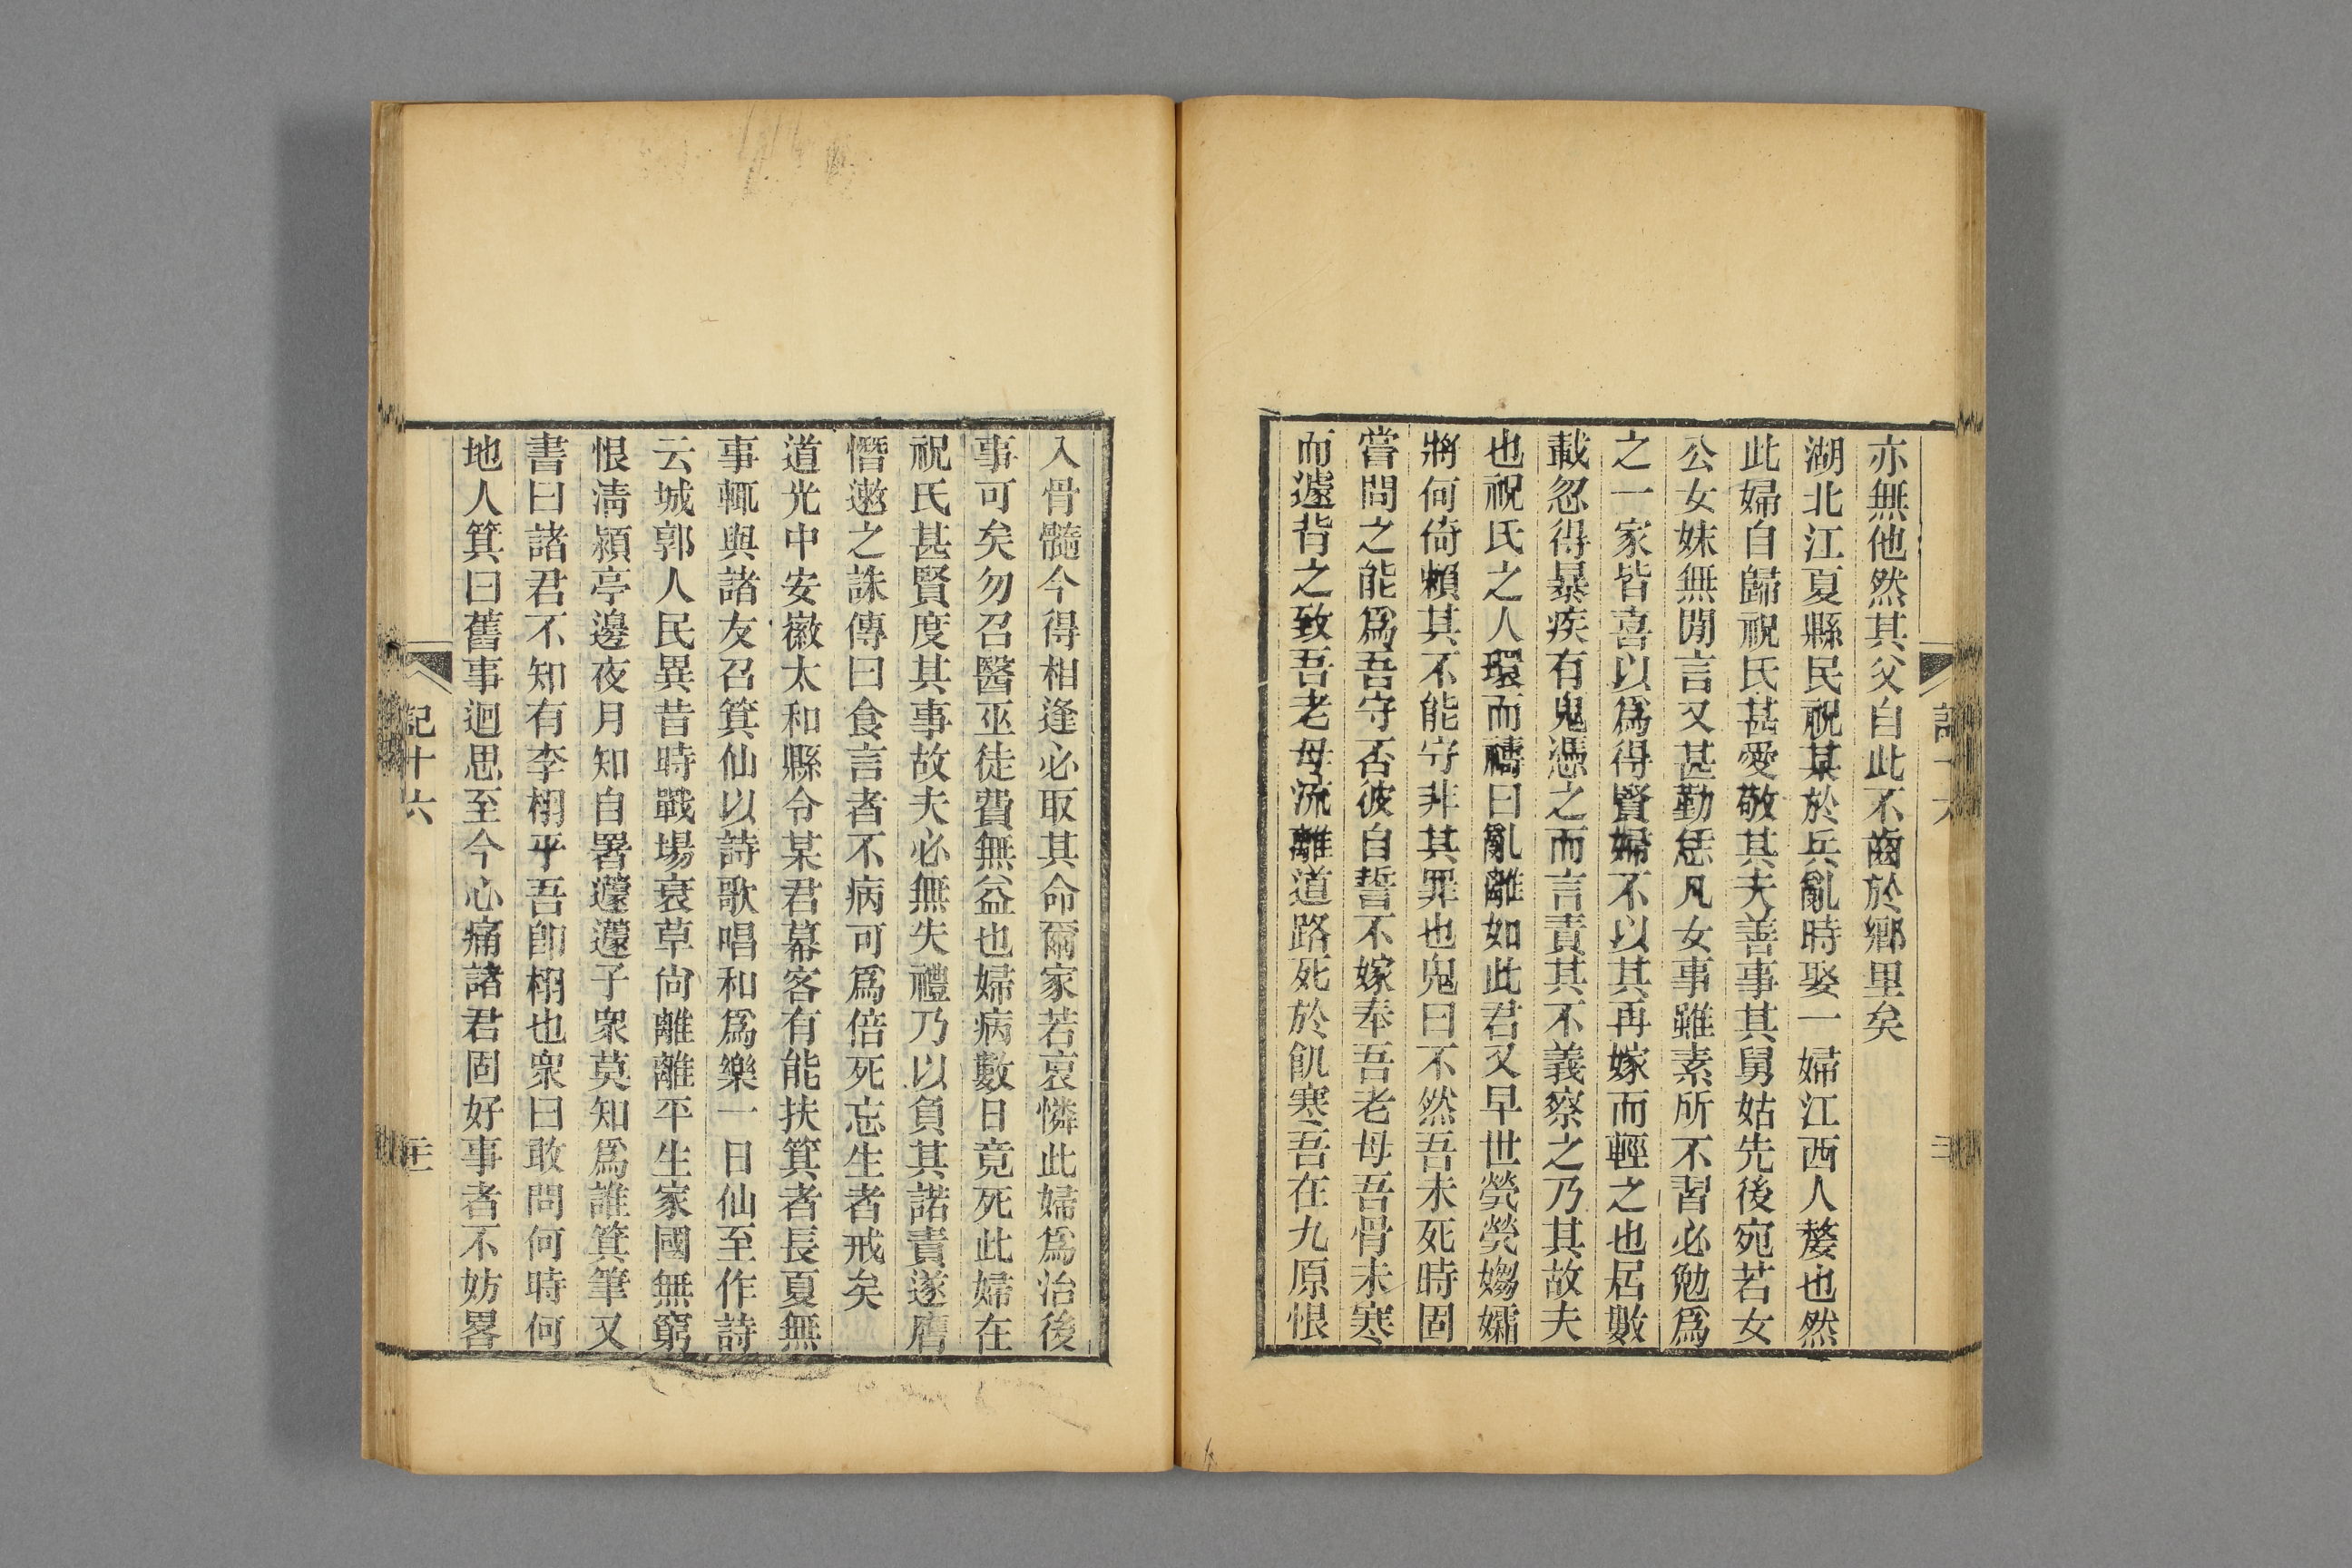 亦無他然其父自此不齒於鄉里矣
湖北江夏縣民祝某於兵亂時娶一婦江西人嫠也然
此婦自歸祝氏甚愛敬其夫善事其舅姑先後宛若女
公女妹無閒言又甚勤恁凡女事雖素所不習必勉爲
之一家皆喜以爲得賢婦不以其再嫁而輕之也居數
載忽得暴疾有鬼憑之而言責其不義察之乃其故夫
也祝氏之人環而禱曰亂離如此君又早世煢煢嫋孀
將何倚賴其不能守非其罪也鬼曰不然吾未死時固
嘗問之能爲吾守否彼自誓不嫁奉吾老母吾骨未寒
而遽背之致吾老母流離道路死於飢寒吾在九原恨
入骨髓今得相逢必取其命爾家若哀憐此婦爲治後
事可矣勿召醫巫徒費無益也婦病數日竟死此婦在
祝氏甚賢度其事故夫必無失禮乃以負其諾責遂膺
憯遬之誅傳曰食言者不病可爲倍死忘生者戒矣
道光中安徽太和縣令某君幕客有能扶箕者長夏無
事輒與諸友召箕仙以詩歌唱和爲樂一日仙至作詩
云城郭人民異昔時戰場衰草尙離離平生家國無窮
恨淸潁亭邊夜月知自署蘧蘧子衆莫知爲誰箕筆又
書曰諸君不知有李栩乎吾卽栩也衆曰敢問何時何
地人箕曰舊事迴思至今心痛諸君固好事者不妨畧
記十六